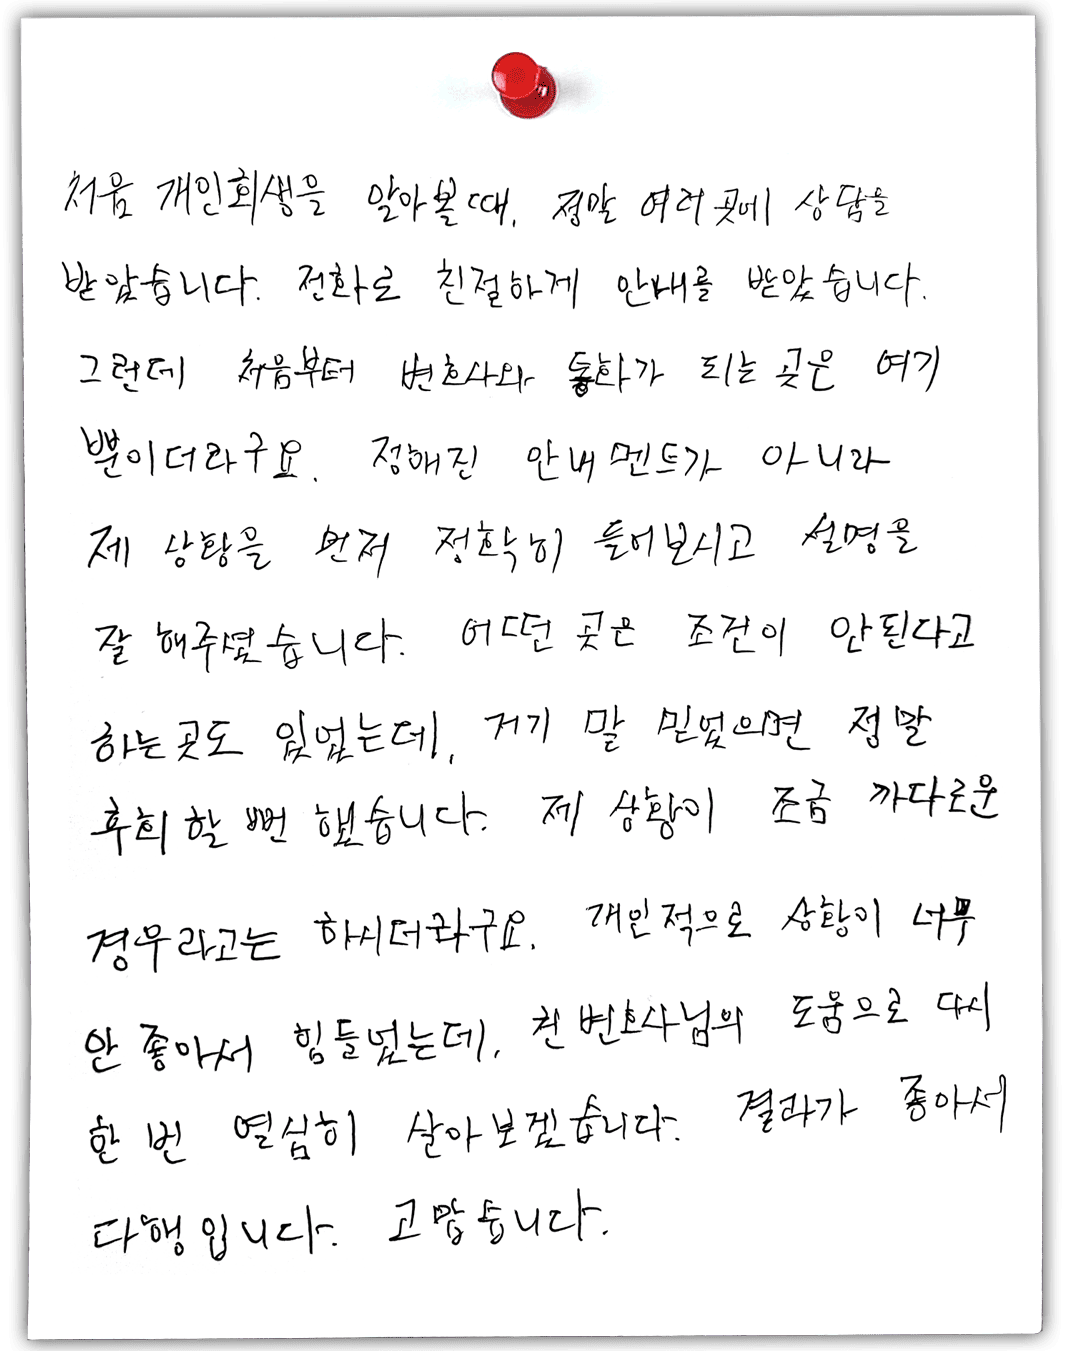 처음 개인회생을 알아볼때, 정말 여러곳에 상담을
받았습니다. 전화로 친절하게 안내를 받았습니다.
그런데 처음부터 변호사와 통화가 되는 곳은 여기
뿐이더라구요. 정해진 안내멘트가 아니라
제 상황을 먼저 정확히 들어보시고 설명을
잘 해주셨습니다. 어떤 곳은 조건이 안된다고
하는곳도 있었는데, 거기 말 믿었으면 정말
후회할 뻔 했습니다. 제 상황이 조금 까다로운
경우라고는 하시더라구요. 개인적으로 상황이 너무
안 좋아서 힘들었는데, 천변호사님의 도움으로 다시
한 번 열심히 살아보겠습니다. 결과가 좋아서
다행입니다. 고맙습니다.